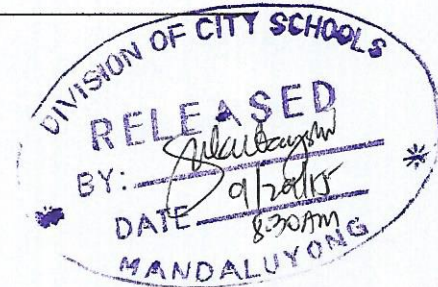 DIVISION OF CITY SCHOOLS
RELEASED
BY:
DATE 9/29/15
8:30AM
MANDALUYONG